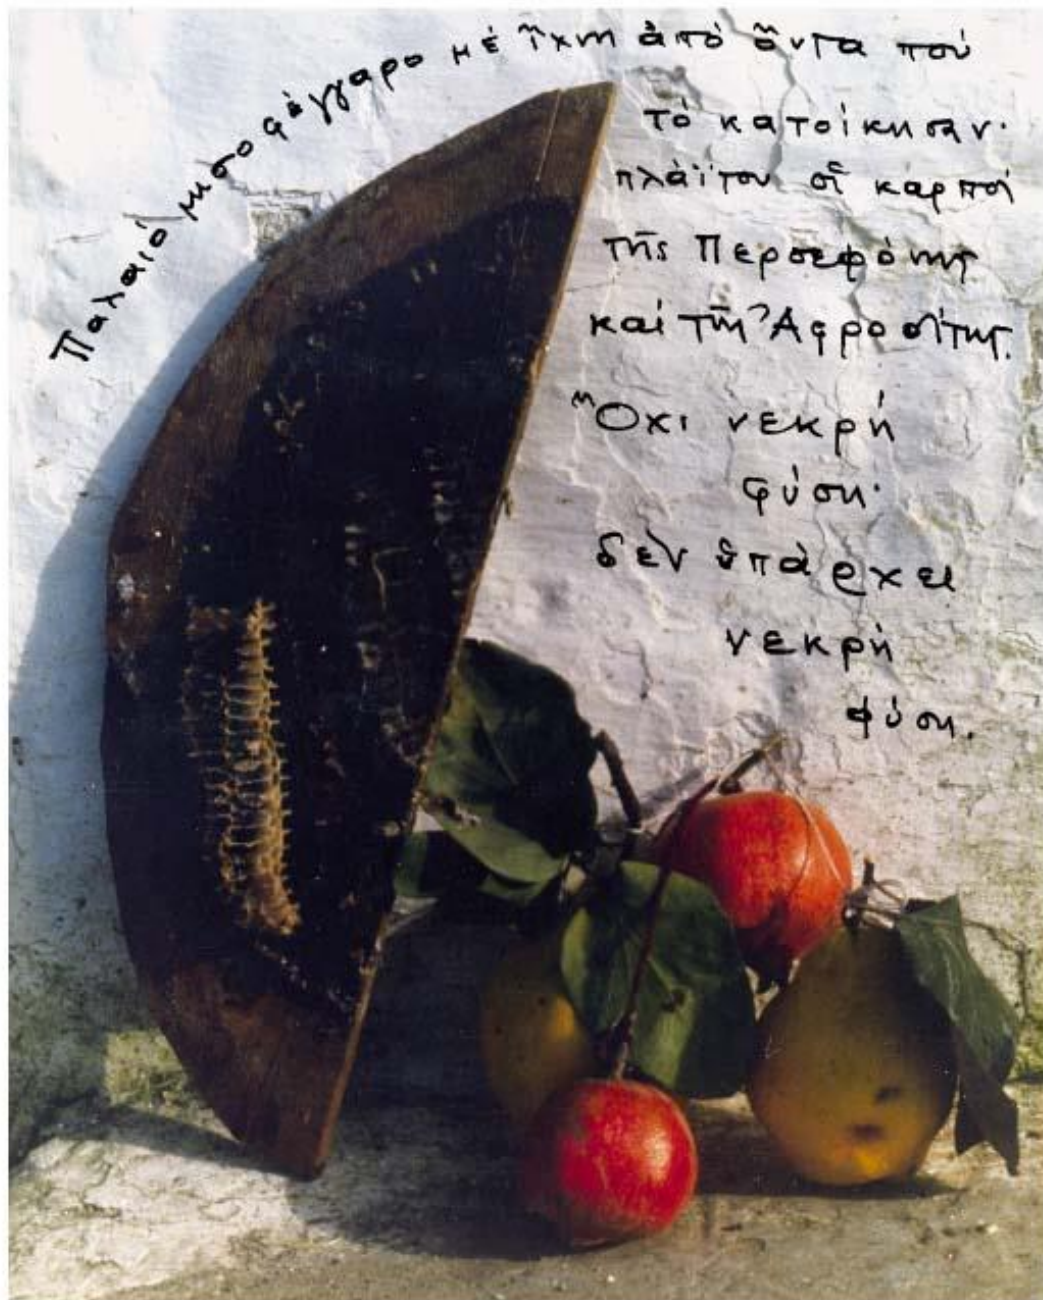 Παλαιό μισοφέγγαρο μέ ἴχνη ἀπό ὄντα πού
τό κατοίκησαν·
πλάϊ του οἱ καρποί
τῆς Περσεφόνης
καί τῆς Ἀφροδίτης.
Ὄχι νεκρή
φύση·
δέν ὑπάρχει
νεκρή
φύση.